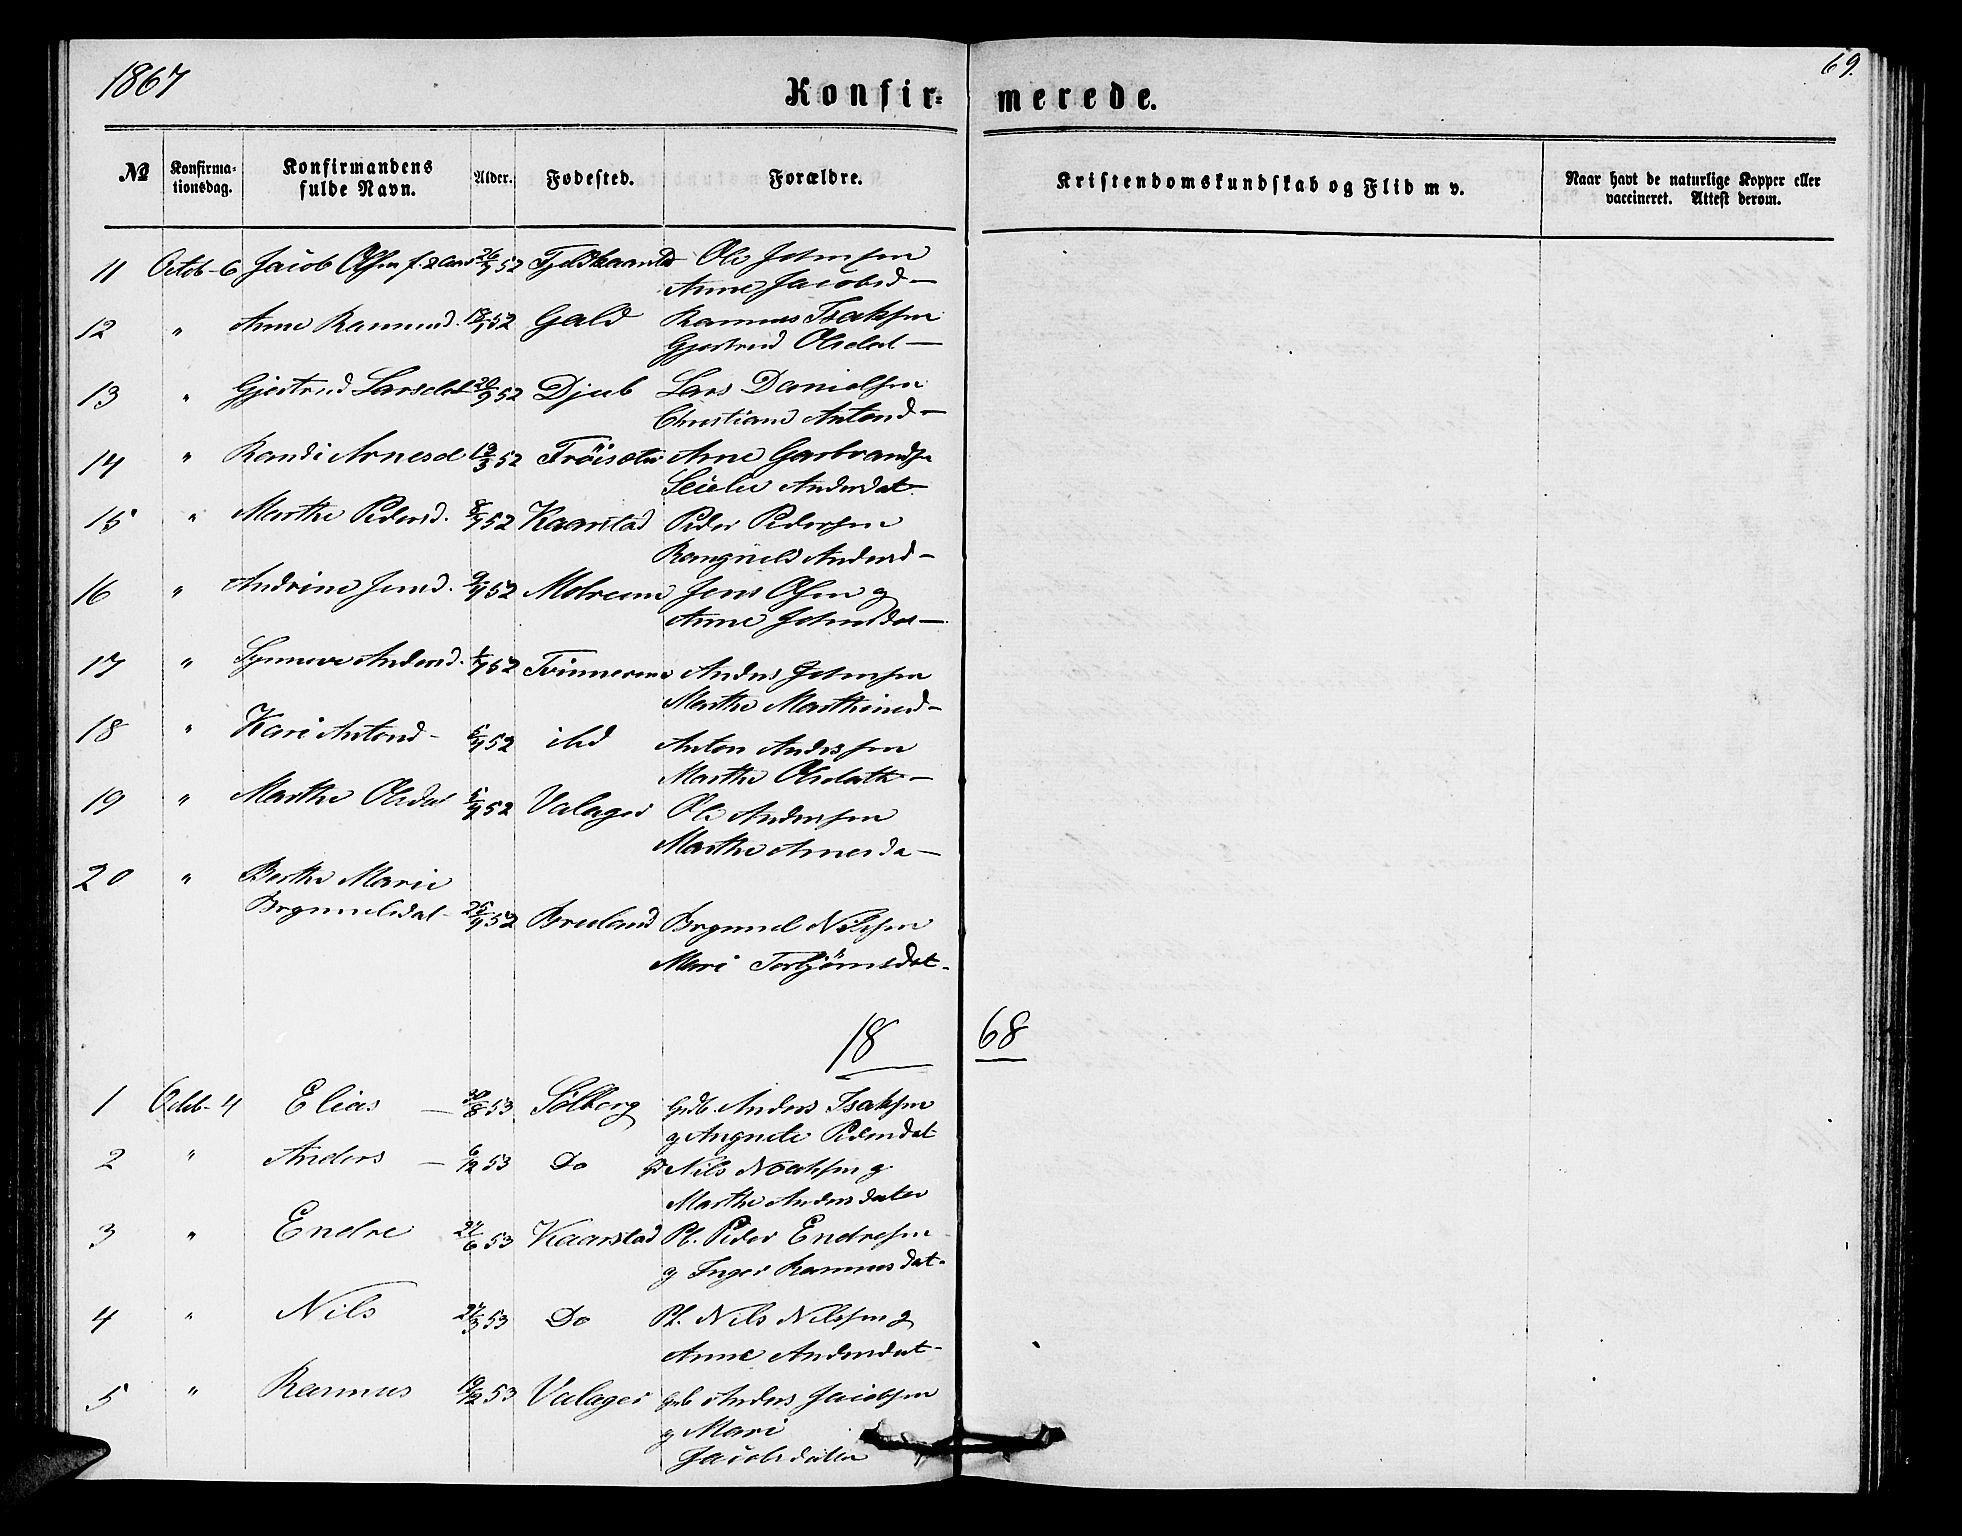 1867
69.
Konfir=
merede.
№
Konfirma-
tionsdag.
Konfirmandens
fulde Navn.
Alder.
Fødested.
Forældre.
Kristendomskundskab og Flid m v.
Naar havt de naturlige Kopper eller
vaccineret. Attest derom.
11 Octob-6 Jacob Olsen 52 Ole Johnsen
Anne Jacobsd-
12 " Anne Rasmusd. 52 Gald Rasmus Isaksen
Gjertrud Olsdat-
13 " Gjertrud Larsdat 52 Djub Lars Danielsen
Christiane Antond-
14 " Randi Arnesd 52 Arne Garbrands
Andersdat-
15 " Marthe Pedersd. 52 Kaarstad Peder Pedersen
Rangnild Andersd-
16 " Andrine Jensd. 52 Jens Olsen og
Anne Johnsdat-
17 " Synneve Andersd. 52 Tvinnereim Anders Johnsen
Marthe Marthinsd-
18 " Kari Antond- 52 ibd Anton Anderssen
Marthe Olsdatt-
19 " Marthe Olsdat 52 Valager Ole Anderssen
Marthe Arnesda-
20 " Berthe Marie
Brynnelsdat- 25/9 52 Breeland Brynnel Nilssen
Mari Torbjörnsdat-
18 68
1 Octob-4 Elias - 30/8 53 Sölberg Gdb. Anders Isaksen
og Angnete Pedersdat
2 " Anders - 6/12 53 Do Nils Noaksen og
Marthe Andersdatter
3 " Endre 53 Kaarstad Pl. Peder Endresen
og Inger Rasmusdat-
4 " Nils 53 Do Pl. Nils Nilssen og
Anne Andersdat-
5 " Rasmus 19/12 53 Valager Gdb Anders Jacobsen
og Mari
Jacobsdatter